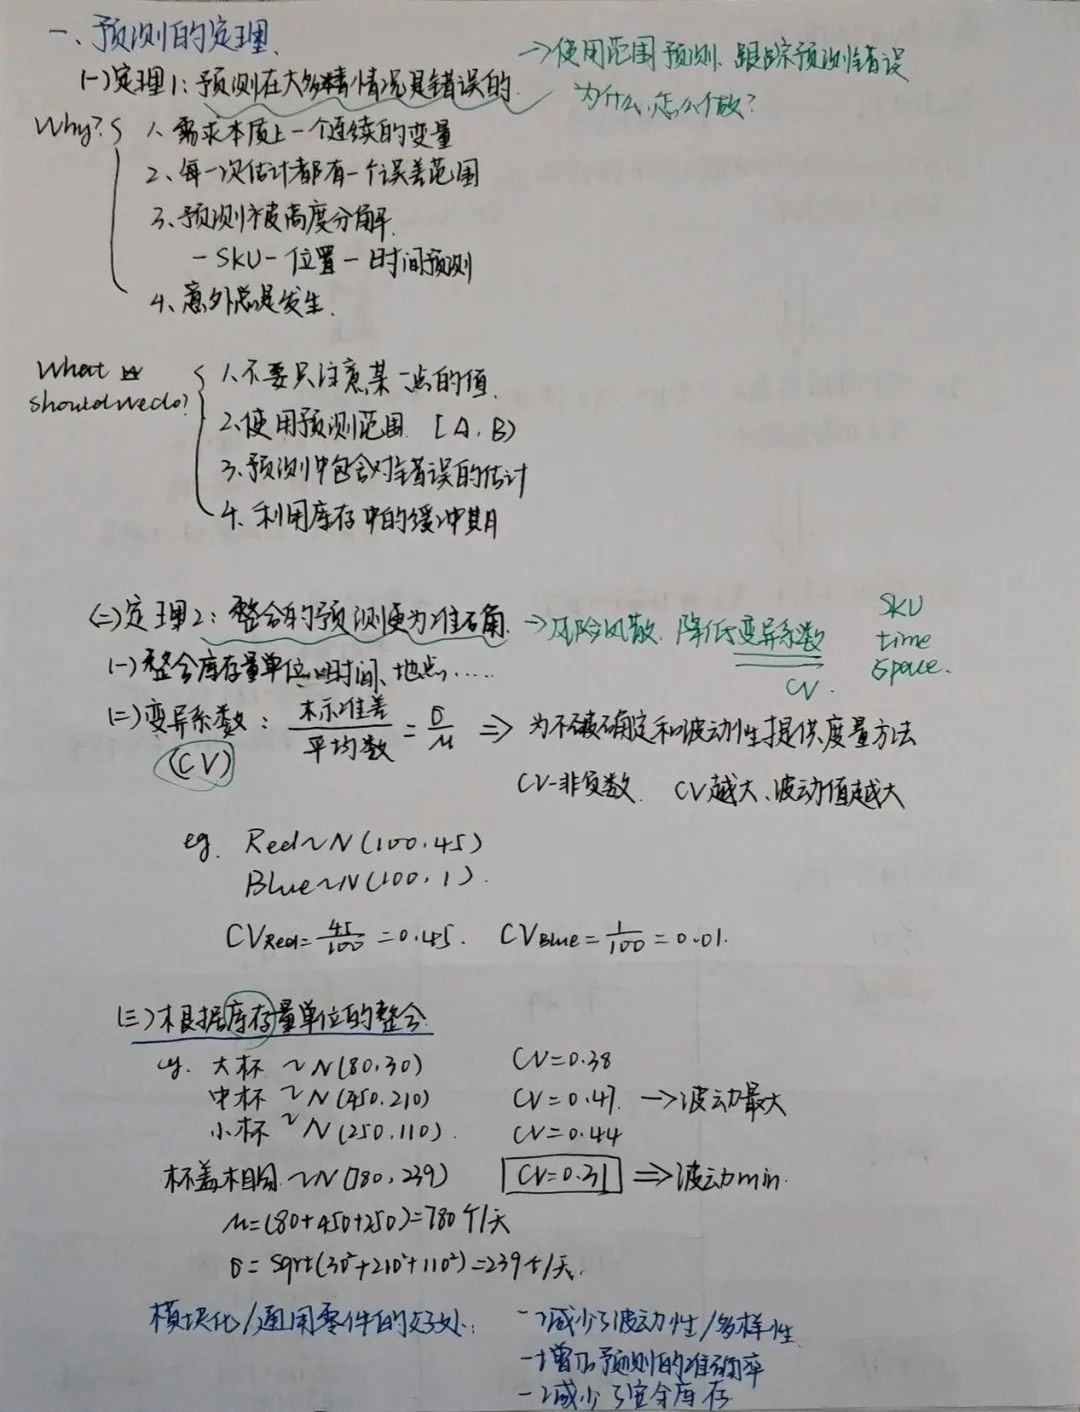 一、预测的定理.
(一)定理1: 预测在大多情况是错误的.
→使用范围预测、跟踪预测错误
为什么,怎么做?
Why? 1、需求本质上一个连续的变量
2、每一次估计都有一个误差范围
3、预测被高度分解.
－SKU－位置－时间预测
4、意外总是发生.
What should we do? 1、不要只注意某一点的值.
2、使用预测范围. [A,B)
3、预测中包含对错误的估计
4、利用库存中的缓冲期
(二)定理2: 整合的预测更为准确. →风险风散. 降低变异系数 CV.
SKU
time
space.
(一)整合库存量单位、时间、地点.....
(二)变异系数: 标准差/平均数 = σ/μ ⇒ 为不确定和波动性提供度量方法
(CV)
CV-非负数. CV越大、波动值越大
eg. Red~N(100,45)
Blue~N(100,1).
CVRed=45/100=0.45. CVBlue=1/100=0.01.
(三)根据库存量单位的整合.
eg. 大杯 ~N(80,30) CV=0.38
中杯 ~N(450,210) CV=0.47. →波动最大
小杯 ~N(250,110). CV=0.44
杯盖相同.~N(780,239) CV=0.31 ⇒波动min.
μ=(80+450+250)=780个/天
σ=sqrt(30²+210²+110²)=239个/天.
模块化/通用零件的好处: →减少了波动性/多样性
→增加预测的准确率
→减少了安全库存